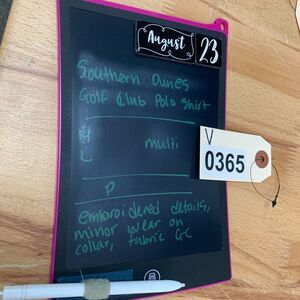 August 23
Southern Dunes
Golf Club Polo Shirt
V
0365
L multi
P
embroidered details,
minor wear on
collar, fabric GC